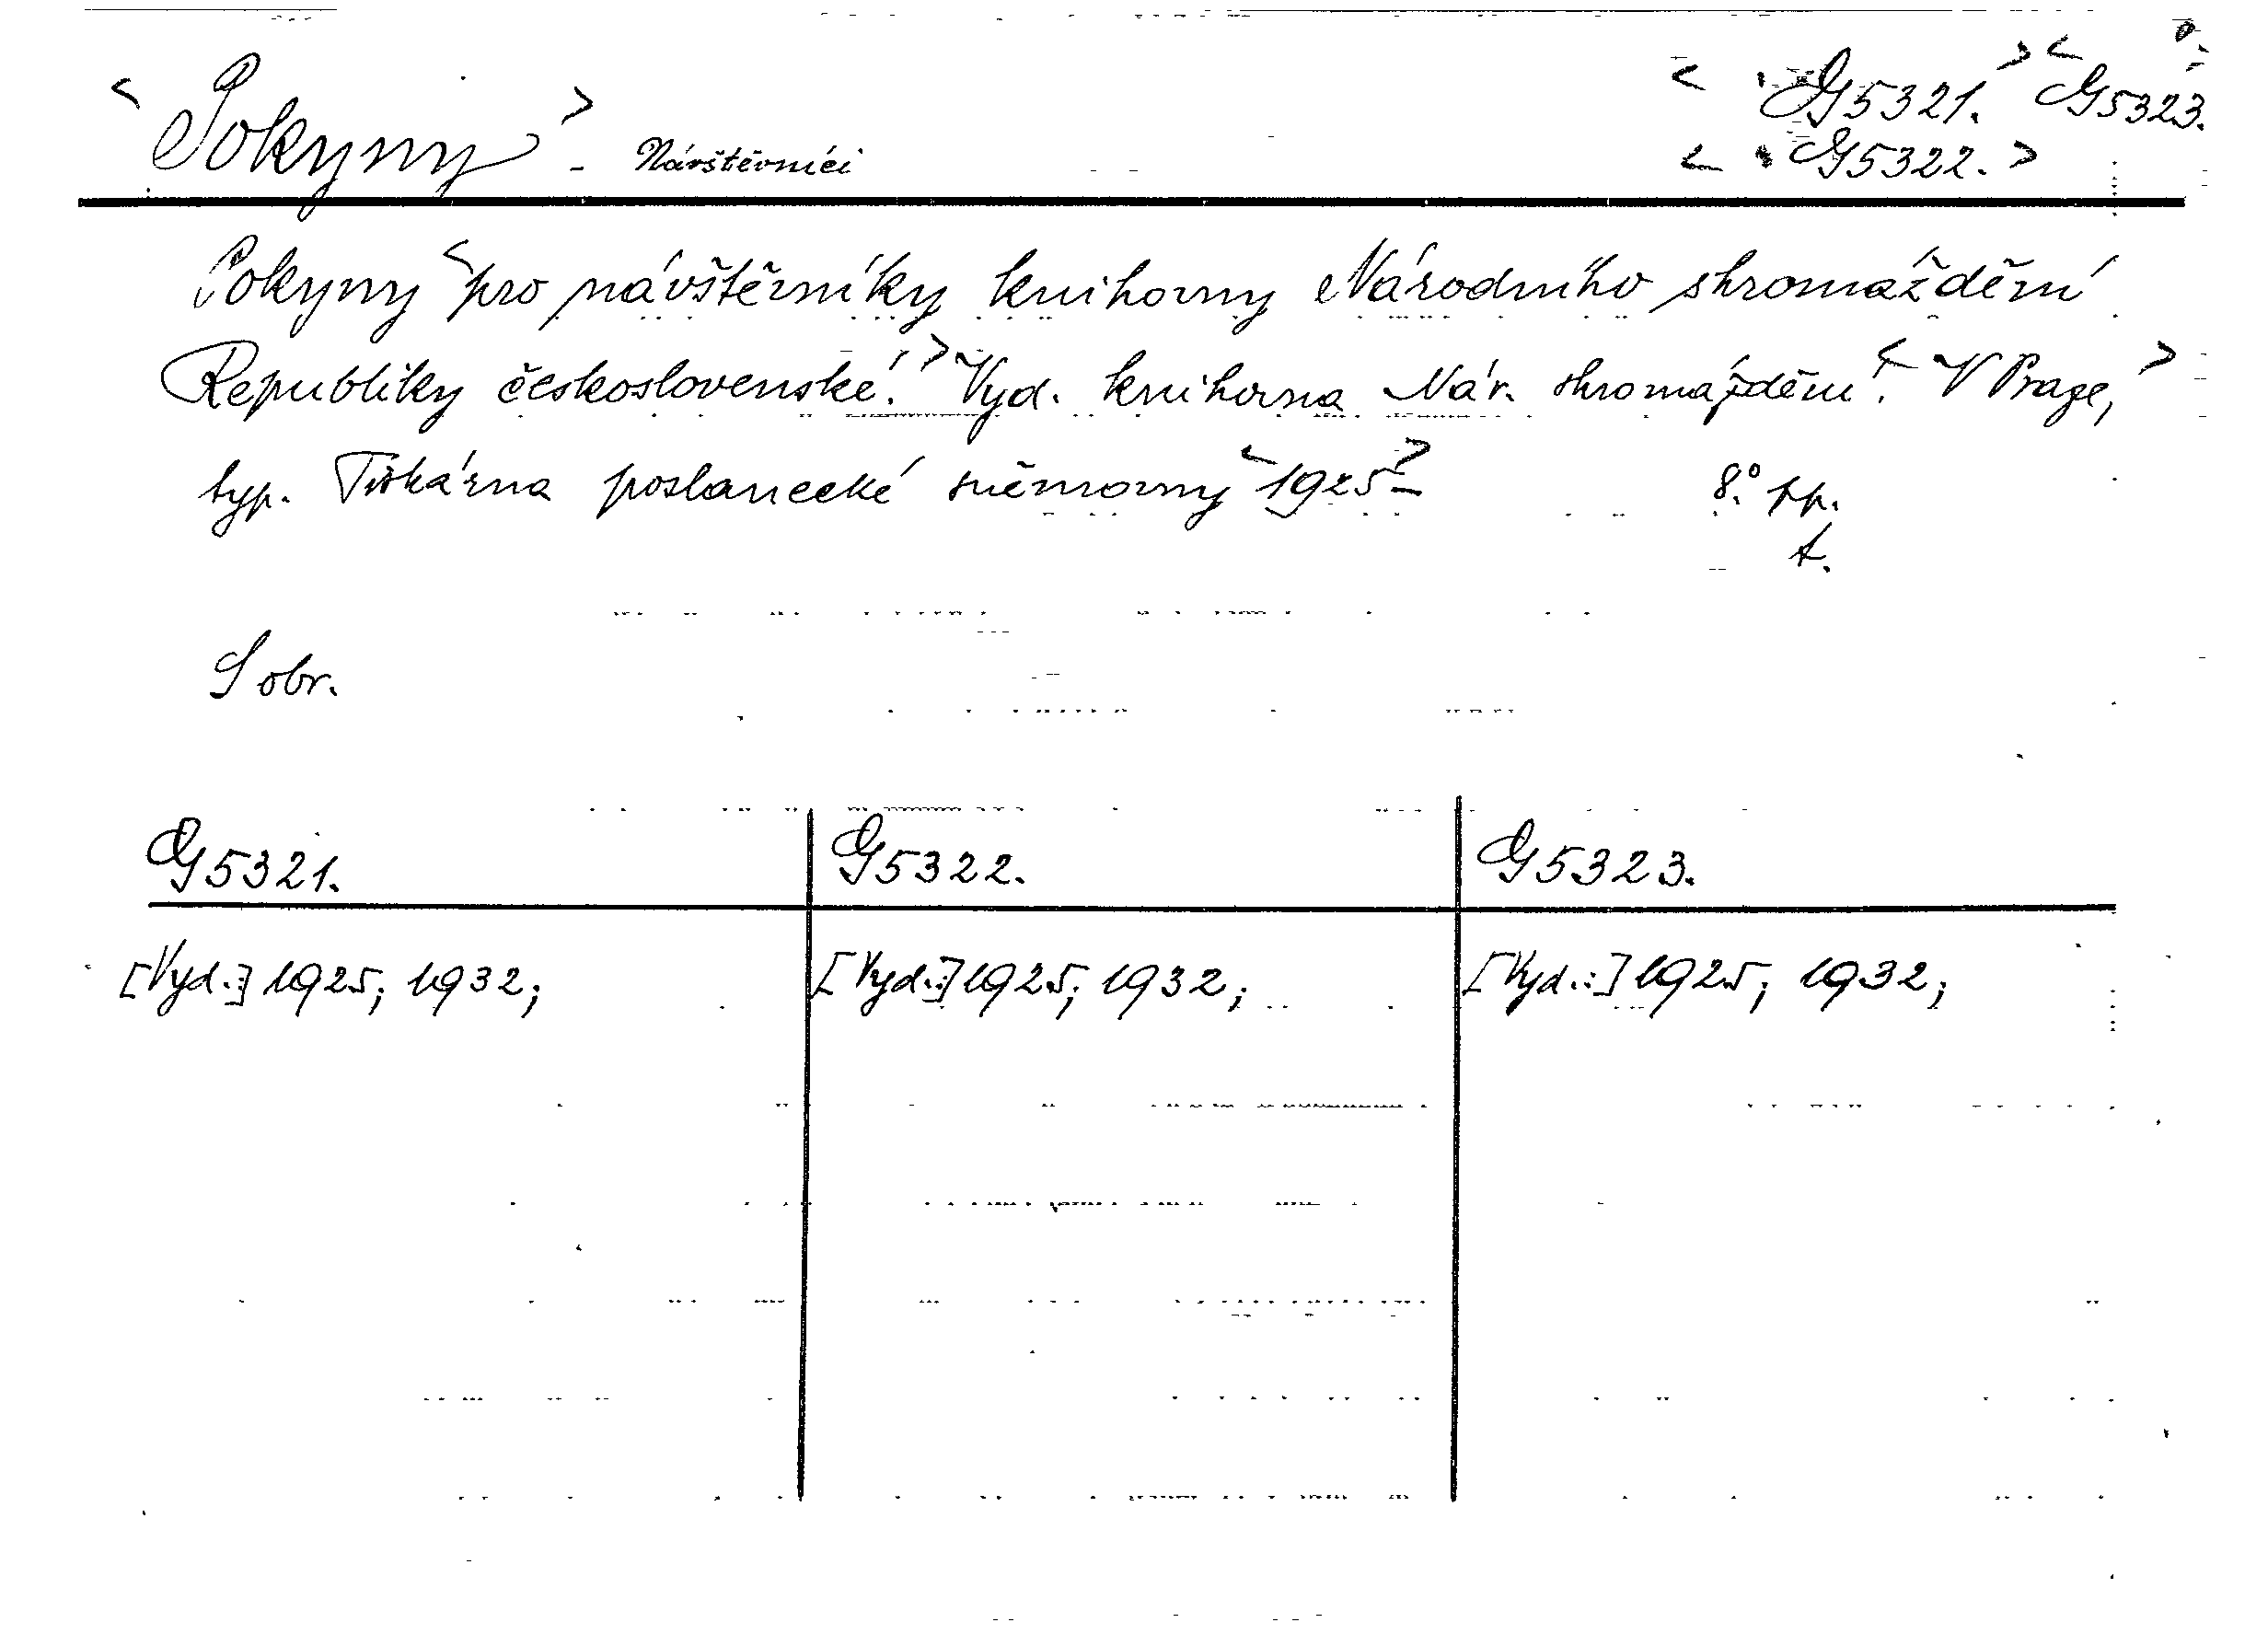 < Pokyny > - Návštěvníci < G5321. > < G5323.
< G5322. >
Pokyny < pro návštěvníky knihovny Národního shromáždění
Republiky československé. > Vyd. knihovna Nár. shromáždění. < V Praze, >
typ. Tiskárna poslanecké sněmovny < 1925 > - 8.° pp.
t.
S obr.
G5321. G5322. G5323.
[Vyd.:] 1925; 1932; [Vyd.:] 1925; 1932; [Vyd.:] 1925; 1932;